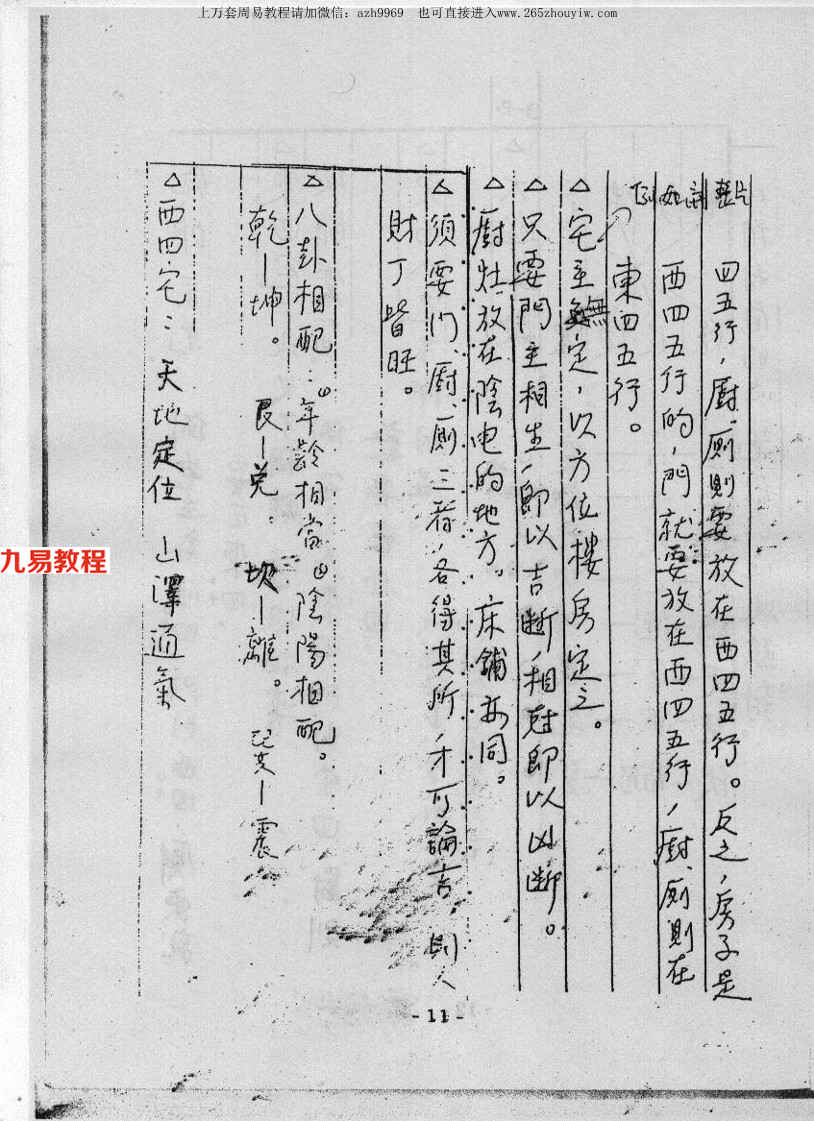 上万套周易教程请加微信：azh9969　也可直接进入www.265zhouyiw.com
四五行，廚、厠則要放在西四五行。反之，房子是
西四五行的，門就要放在西四五行，廚、厠則在
東四五行。
△宅主無定，以方位樓房定之。
△只要門主相生，即以吉断，相尅即以凶断。
△廚灶放在陰电的地方。床鋪亦同。
△須要门、廚、厠三者，各得其所，才可論吉，則人
財丁皆旺。
△八卦相配：年齡相當 陰陽相配。
乾—坤。 艮—兌。 坎—離。 巽—震
△西四宅：天地定位 山澤通氣
九易教程
- 11 -